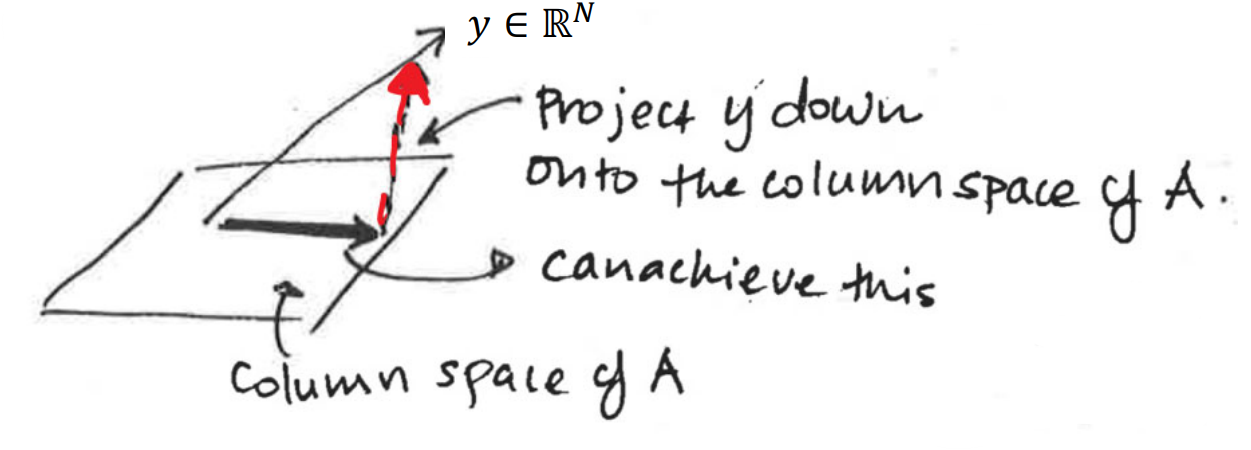 y ∈ ℝᴺ
Project y down
onto the column space of A.
can achieve this
Column space of A